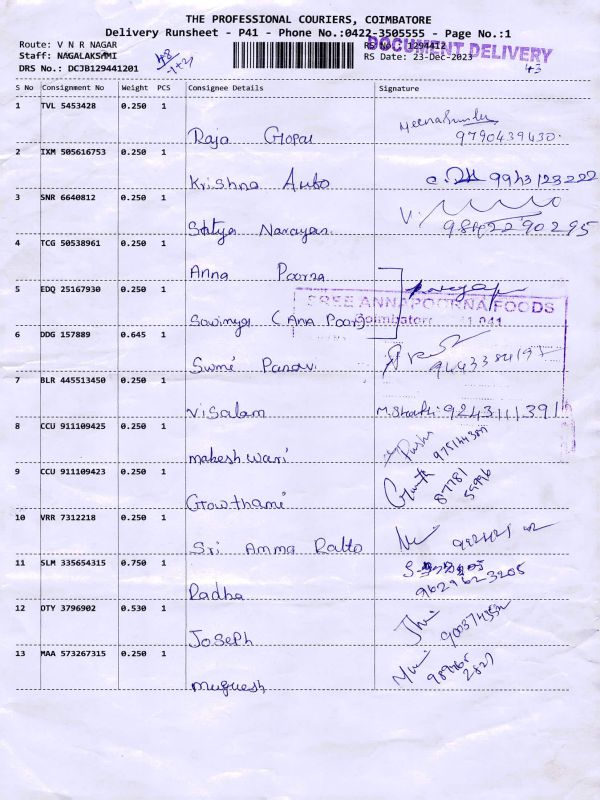 THE PROFESSIONAL COURIERS, COIMBATORE
Delivery Runsheet - P41 - Phone No.:0422-3505555 - Page No.:1
Route: V N R NAGAR
RS No.: 1294412
DOCUMENT DELIVERY
Staff: NAGALAKSAMI
RS Date: 23-Dec-2023
DRS No.: DCJB129441201
43
S No Consignment No Weight PCS Consignee Details Signature
1 TVL 5453428 0.250 1 Raja Gopal
9790439430.
2 IXM 505616753 0.250 1 Krishna Auto 9943123222
3 SNR 6640812 0.250 1 Sathya Narayan V. 9842290295
4 TCG 50538961 0.250 1 Anna Poorna
5 EDQ 25167930 0.250 1 Sowmya (Ana Poorg
FREE ANNAPOORNA FOODS
Coimbatore 11 041
6 DDG 157889 0.645 1 Sumi Panavi
7 BLR 445513450 0.250 1 Visalam 9243111391
8 CCU 911109425 0.250 1 makeshwari
9 CCU 911109423 0.250 1 Gowthami 87781
10 VRR 7312218 0.250 1 Sri Amma
11 SLM 335654315 0.750 1 Radha 9629623205
12 OTY 3796902 0.530 1 Joseph
13 MAA 573267315 0.250 1 muguesh
2827